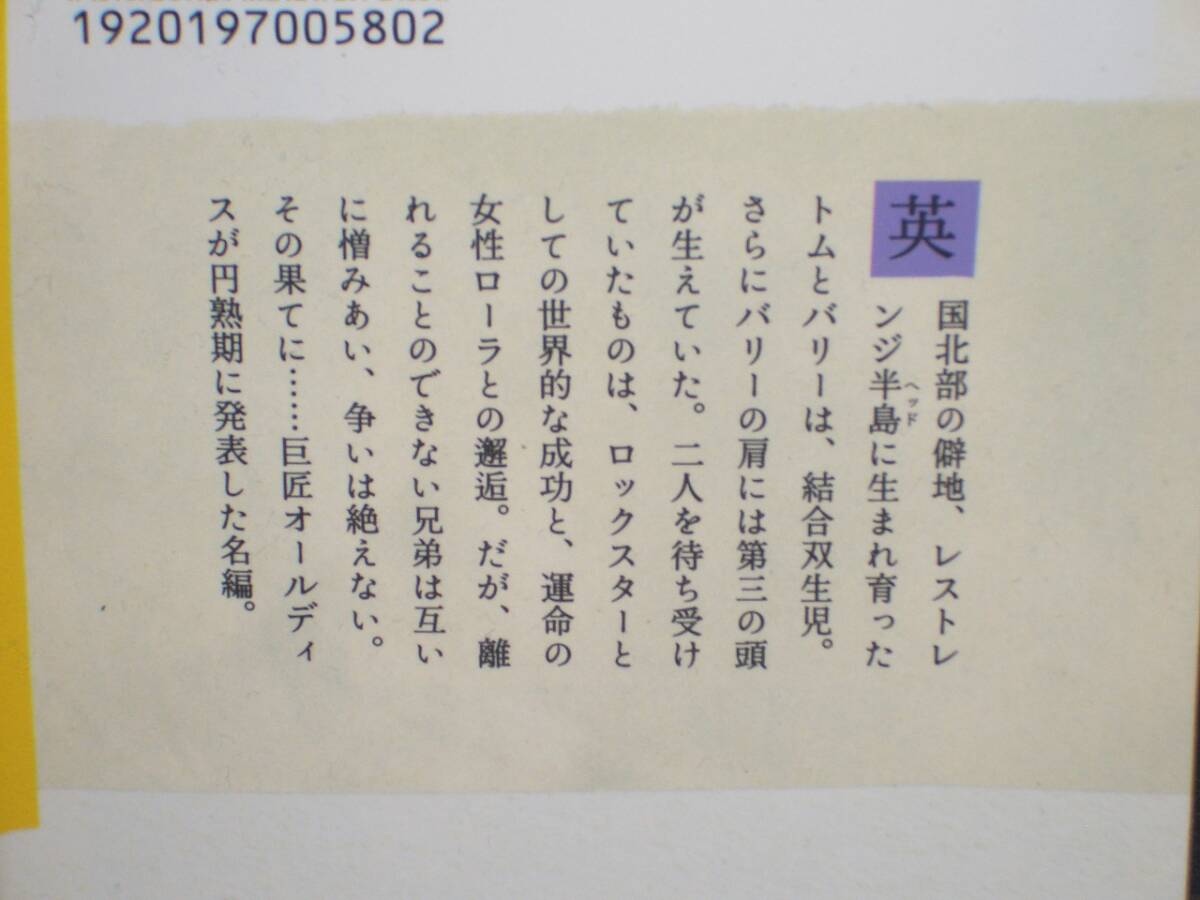 1920197005802
英国北部の僻地、レストレ
ンジ半島に生まれ育った
ヘッド
トムとバリーは、結合双生児。
さらにバリーの肩には第三の頭
が生えていた。二人を待ち受け
ていたものは、ロックスターと
しての世界的な成功と、運命の
女性ローラとの邂逅。だが、離
れることのできない兄弟は互い
に憎みあい、争いは絶えない。
その果てに……巨匠オールディ
スが円熟期に発表した名編。